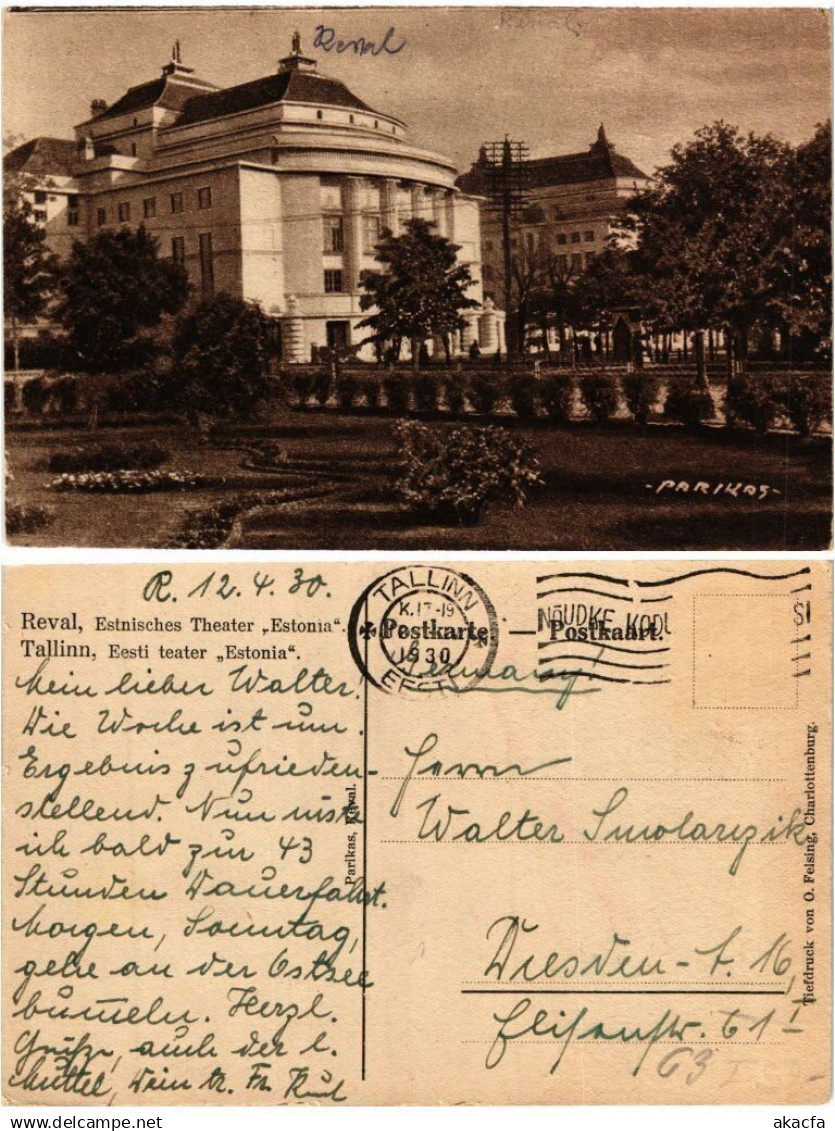 Reval
Reval
-PARIKAS-
R. 12.4.30.
Reval, Estnisches Theater „Estonia“.
Tallinn, Eesti teater „Estonia“.
TALLINN
K. 17-19
1930
EESTI
Postkarte. — Postkaart.
NÕUDKE KODU
Germany!
Mein lieber Walter!
Die Woche ist um.
Ergebnis zufrieden-
stellend. Nun
ich bald zur 43
Stunden Dauerfahrt.
Morgen, Sonntag,
gehe an der Ostsee
bummeln. Herzl.
Grüße, auch der l.
Muttel, Dein tr. Fr.
Parikas, Reval.
Herrn
Walter Smolarczik
Dresden-A. 16,
Elisenstr. 61 I
63 I
Tiefdruck von O. Felsing, Charlottenburg.
akacfa